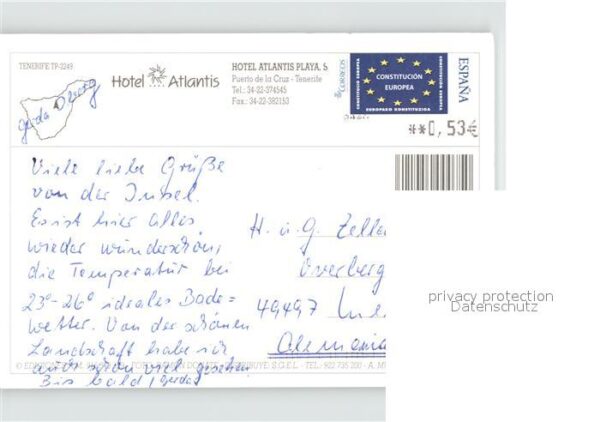 TENERIFE TP-2249
Hotel Atlantis
HOTEL ATLANTIS PLAYA, S
Puerto de la Cruz - Tenerife
Tel.: 34-22-374545
Fax.: 34-22-382153
CORREOS
CONSTITUCIÓN
EUROPEA
ESPAÑA
**0,53€
Viele liebe Grüße
von der Insel.
Es ist hier alles
wieder wunderschön,
die Temperatur bei
23°-26° ideales Bade=
wetter. Von der schönen
Landschaft habe ich
auch schon viel gesehen
Bis bald,
H. u. G. Zeller
Overberg
49497
Alemania
TEL - 922 735 200 - A. M
privacy protection
Datenschutz